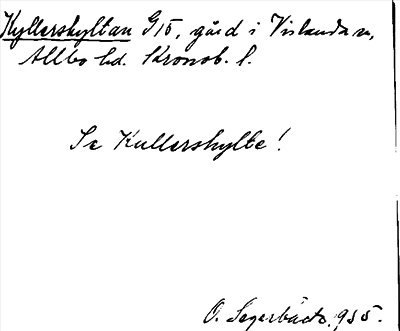 Kyllerskyltan G15, gård i Vislanda sn,
Allbo hd. Kronob. l.
Se Kullerskylte!
O. Segerbäck, 935.